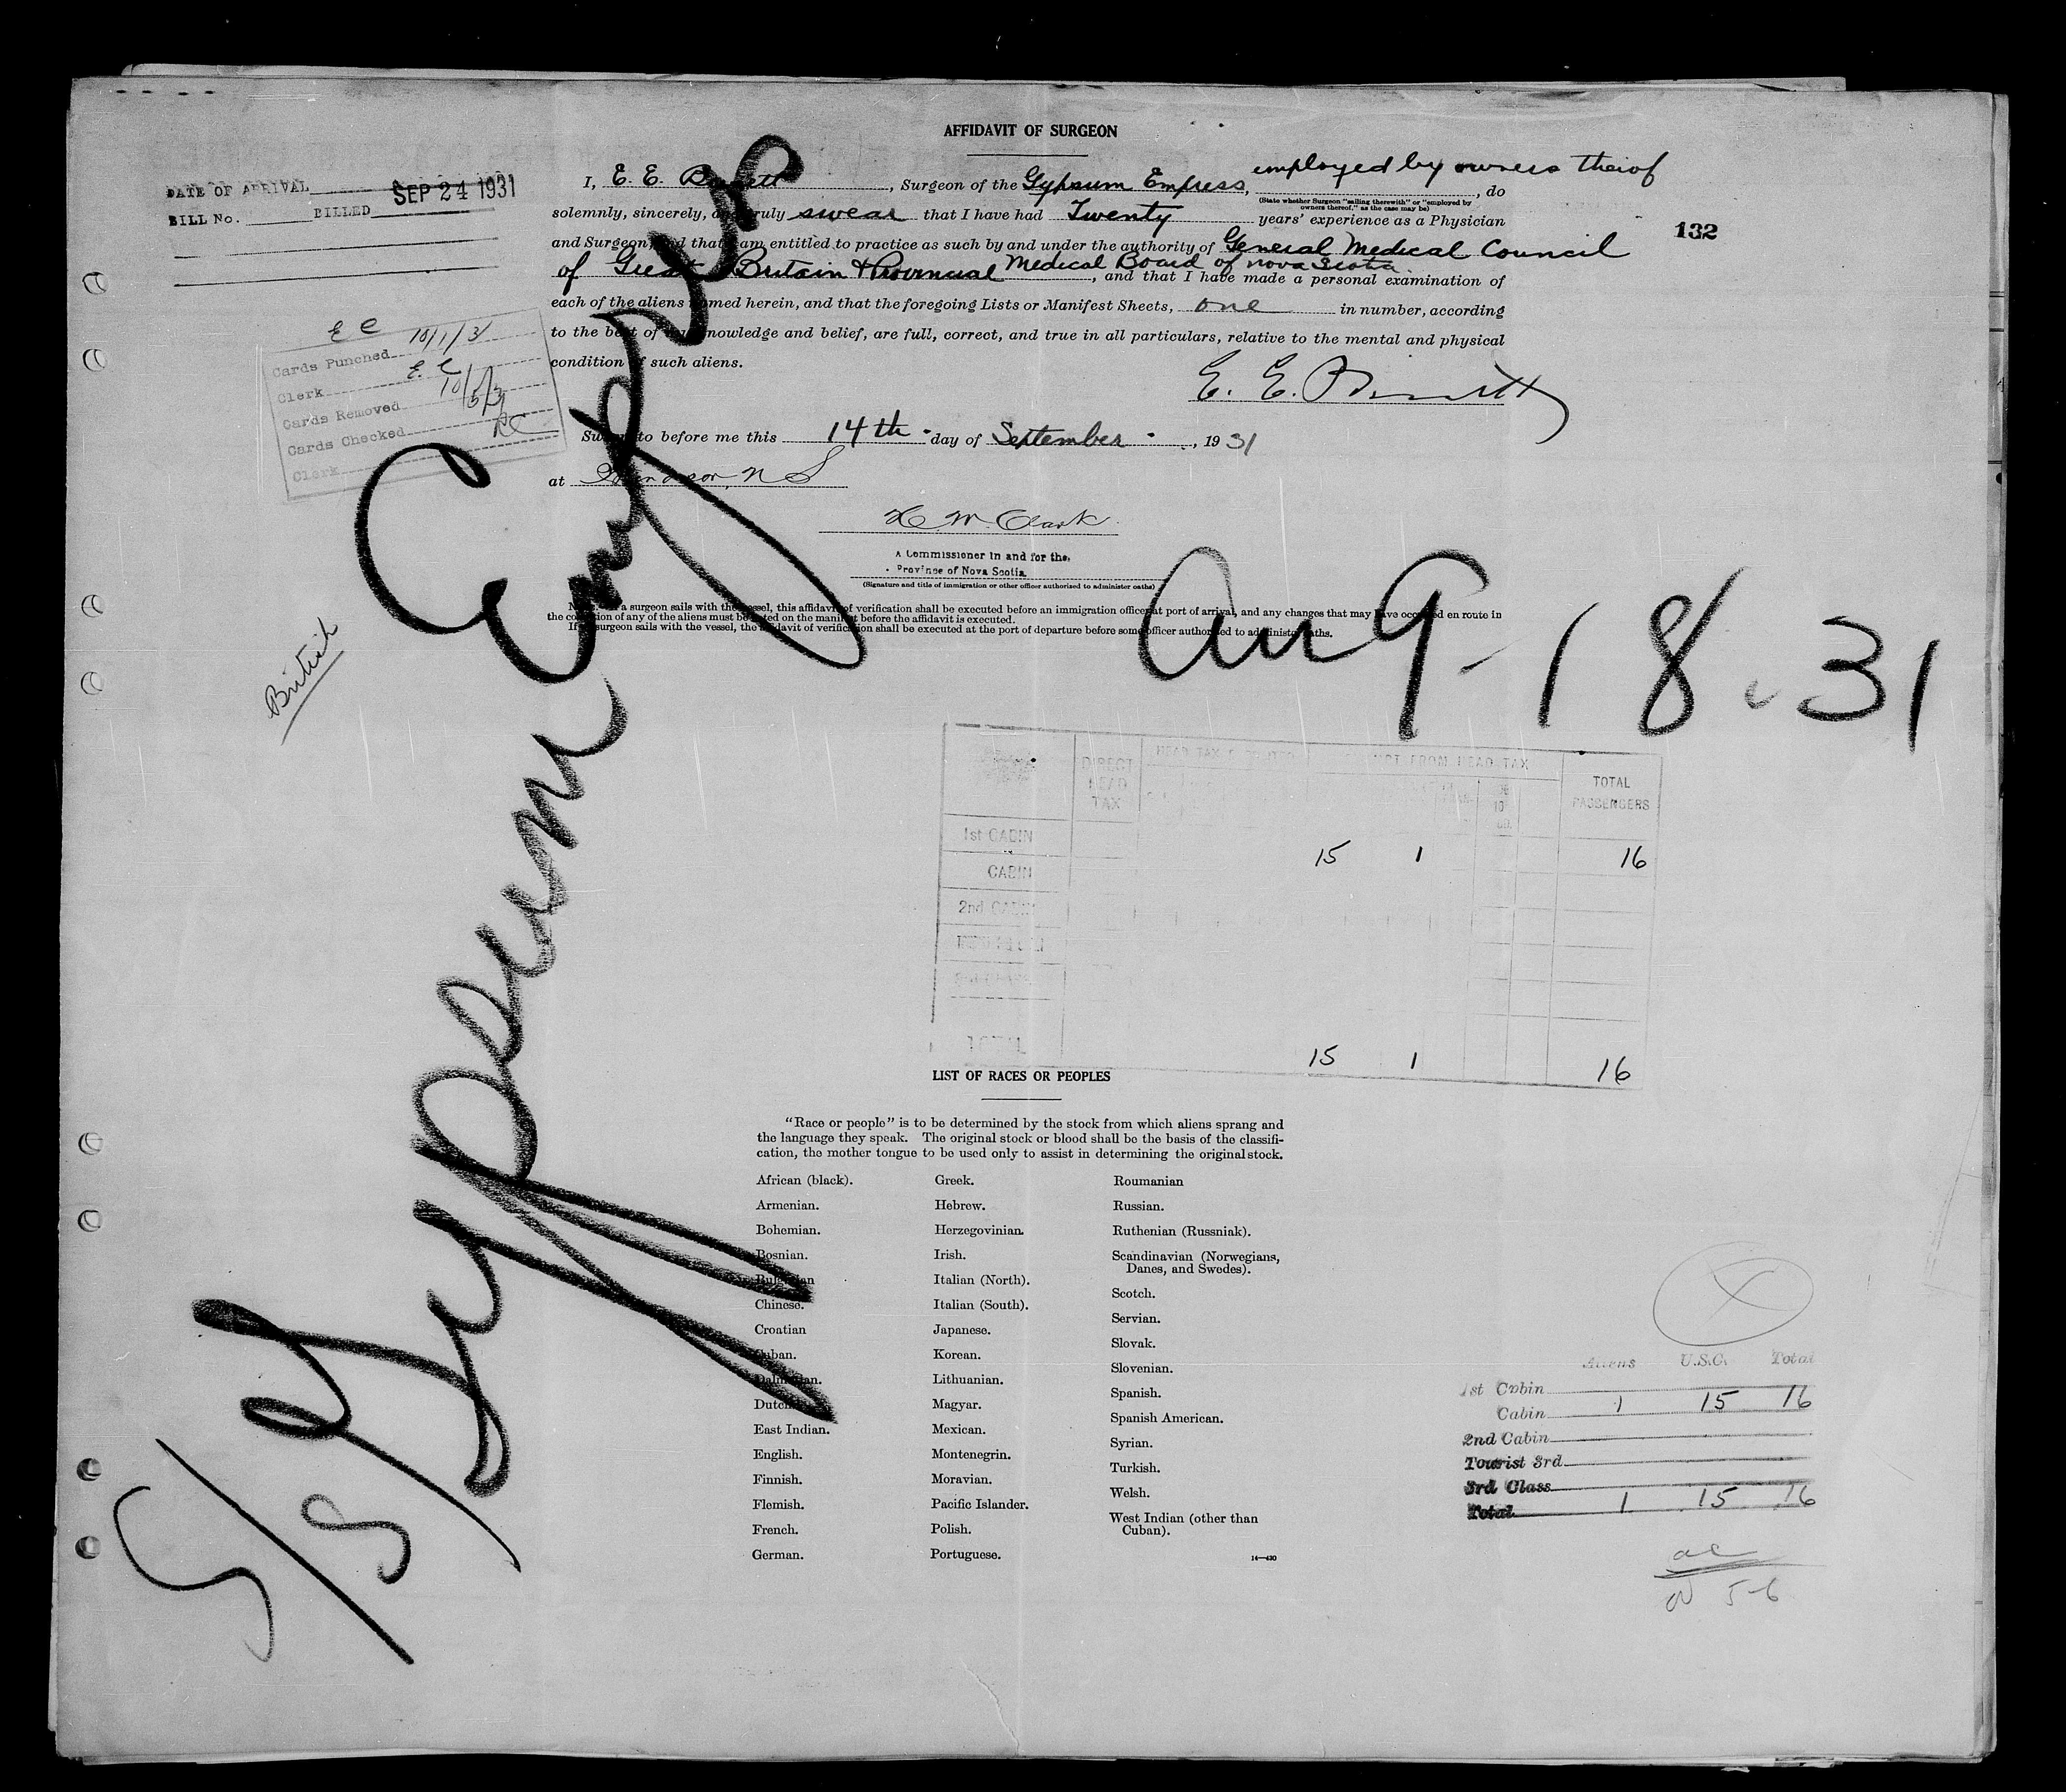 AFFIDAVIT OF SURGEON
DATE OF ARRIVAL SEP 24 1931
BILL No. BILLED
I, E. E. , Surgeon of the Gypsum Empress, employed by owners theiof, do
(State whether Surgeon "sailing therewith" or "employed by
owners thereof," as the case may be)
solemnly, sincerely, and truly swear that I have had Twenty years' experience as a Physician
132
and Surgeon, and that I am entitled to practice as such by and under the authority of General Medical Council
of Great Britain & Provincial Medical Board of nova Scotia, and that I have made a personal examination of
each of the aliens named herein, and that the foregoing Lists or Manifest Sheets, one in number, according
to the best of my knowledge and belief, are full, correct, and true in all particulars, relative to the mental and physical
condition of such aliens.
E. E.
E C 10/1/31
Cards Punched
E. C.
Clerk 10/5/31
Cards Removed
Cards Checked
Clerk
Sworn to before me this 14th day of September, 1931
at Windsor, N S
H. W. Clark
A Commissioner in and for the
Province of Nova Scotia
(Signature and title of immigration or other officer authorized to administer oaths)
NOTE.—If a surgeon sails with the vessel, this affidavit of verification shall be executed before an immigration officer at port of arrival, and any changes that may have occurred en route in
the condition of any of the aliens must be noted on the manifest before the affidavit is executed.
If no surgeon sails with the vessel, the affidavit of verification shall be executed at the port of departure before some officer authorized to administer oaths.
British
S/S Gypsum Empress
Aug-18-31
DIRECT HEAD TAX
HEAD TAX
EXEMPT FROM HEAD TAX
TOTAL PASSENGERS
1st CABIN
CABIN 15 1 16
2nd CABIN
3rd CLASS
TOTAL 15 1 16
LIST OF RACES OR PEOPLES
"Race or people" is to be determined by the stock from which aliens sprang and
the language they speak. The original stock or blood shall be the basis of the classifi-
cation, the mother tongue to be used only to assist in determining the original stock.
African (black).
Armenian.
Bohemian.
Bosnian.
Bulgarian
Chinese.
Croatian
Cuban.
Dalmatian.
Dutch.
East Indian.
English.
Finnish.
Flemish.
French.
German.
Greek.
Hebrew.
Herzegovinian.
Irish.
Italian (North).
Italian (South).
Japanese.
Korean.
Lithuanian.
Magyar.
Mexican.
Montenegrin.
Moravian.
Pacific Islander.
Polish.
Portuguese.
Roumanian
Russian.
Ruthenian (Russniak).
Scandinavian (Norwegians,
Danes, and Swedes).
Scotch.
Servian.
Slovak.
Slovenian.
Spanish.
Spanish American.
Syrian.
Turkish.
Welsh.
West Indian (other than
Cuban).
14—430
X
Aliens U.S.C. Total
1st Cabin
Cabin 1 15 16
2nd Cabin
Tourist 3rd
3rd Class
Total 1 15 16
5-6